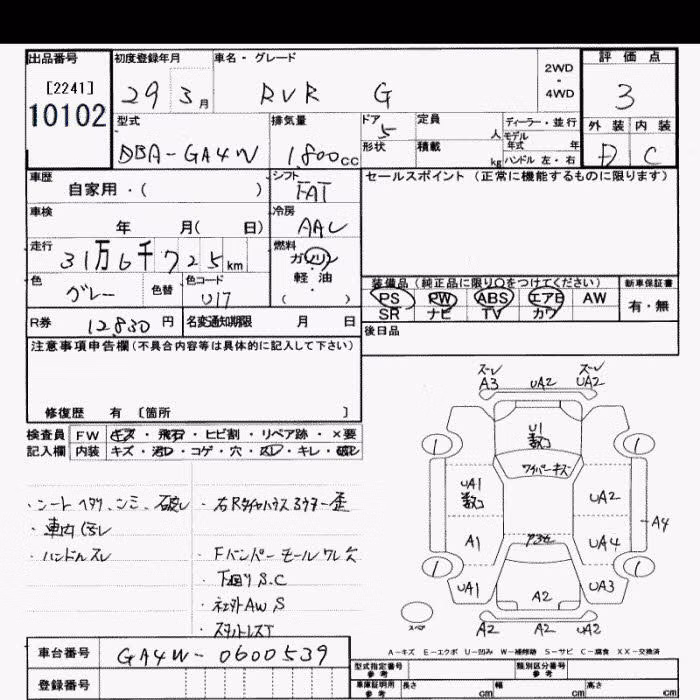 出品番号 初度登録年月 車名・グレード 2WD・4WD 評価点
[2241] 10102 29 3月 RVR G 3
型式 排気量 ドア 5 定員 人 ディーラー・並行 外装 内装
DBA-GA4W 1,800cc 形状 積載 kg モデル年式 年 ハンドル 左・右 D C
車歴 シフト セールスポイント (正常に機能するものに限ります)
自家用・( ) FAT
車検 冷房
年 月( 日) AAC
走行 燃料
31万6千725km ガソリン
色 色替 色コード 軽・油
グレー U17 ( )
装備品 (純正品に限り〇をつけてください) 新車保証書
PS PW ABS エアB AW 有・無
SR ナビ TV カワ
R券 12830円 名変通知期限 月 日 後日品
注意事項申告欄(不具合内容等は具体的に記入して下さい)
修復歴 有 〔箇所 〕
検査員 FW キズ・飛石・ヒビ割・リペア跡・×要
記入欄 内装 キズ・汚レ・コゲ・穴・スレ・キレ・破レ
・シートヘタリ、シミ、破レ
・車内汚レ
・ハンドルスレ
・右Rタイヤハウス
・Fバンパーモールワレ欠
・下廻りS.C
・社外AW S
ズレ ズレ
A3 UA2 UA2
U1
数コ
ワイパーキズ
UA1
数コ
UA2
A4
A1 UA4
UA1 A2 UA3
A2 A2 UA2
1 1 1 1
スペア
A-キズ E-エクボ U-凹み W-補修跡 S-サビ C-腐食 XX-交換済
車台番号 GA4W-0600539
登録番号
型式指定番号 参考 類別区分番号 参考
車庫証明用 参考 長さ cm 幅 cm 高さ cm